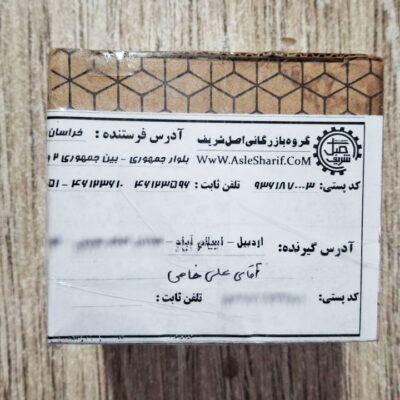 گروه بازرگانی اصل شریف آدرس فرستنده : خراسان
WwW.AsleSharif.CoM بلوار جمهوری - بین جمهوری ۲
کد پستی: ۹۳۶۱۸۷۰۰۰۳ تلفن ثابت : ۴۶۱۲۳۵۹۶ ۴۶۱۲۳۶۱۰ - ۵۱
اصل
شریف
آدرس گیرنده: اردبیل - اسلام آباد -
آقای علی خاصی
کد پستی: تلفن ثابت :